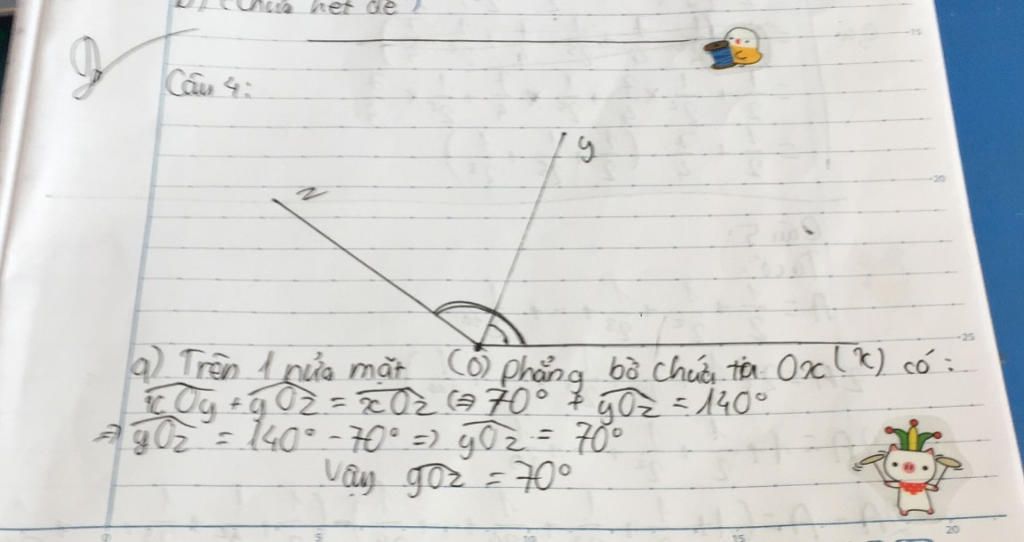 (Chưa hết đề)
Câu 4:
y
z
a) Trên 1 nửa mặt (O) phẳng bờ chứa tia Ox (x) có:
xOy + yOz = xOz <=> 70° + yOz = 140°
=> yOz = 140° - 70° => yOz = 70°
Vậy yOz = 70°
15
20
25
5
10
15
20